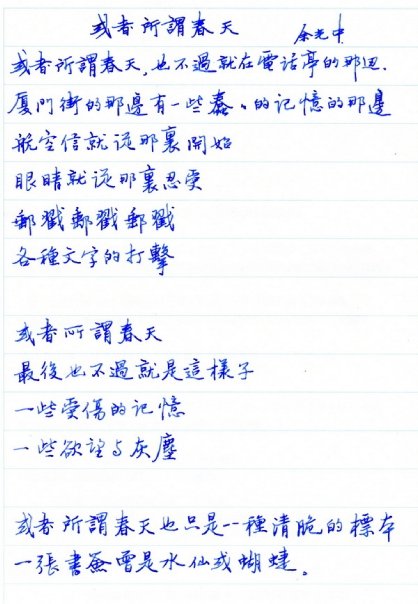 或者所謂春天 余光中
或者所謂春天,也不過就在電話亭的那边.
厦门街的那邊有一些蠢、的记憶的那邊
航空信就從那裏開始
眼睛就從那裏忍受
郵戳郵戳郵戳
各種文字的打擊
或者所謂春天
最後也不過就是這樣子
一些受傷的记憶
一些欲望与灰塵
或者所謂春天也只是一種清脆的標本
一張書簽曾是水仙或蝴蝶。